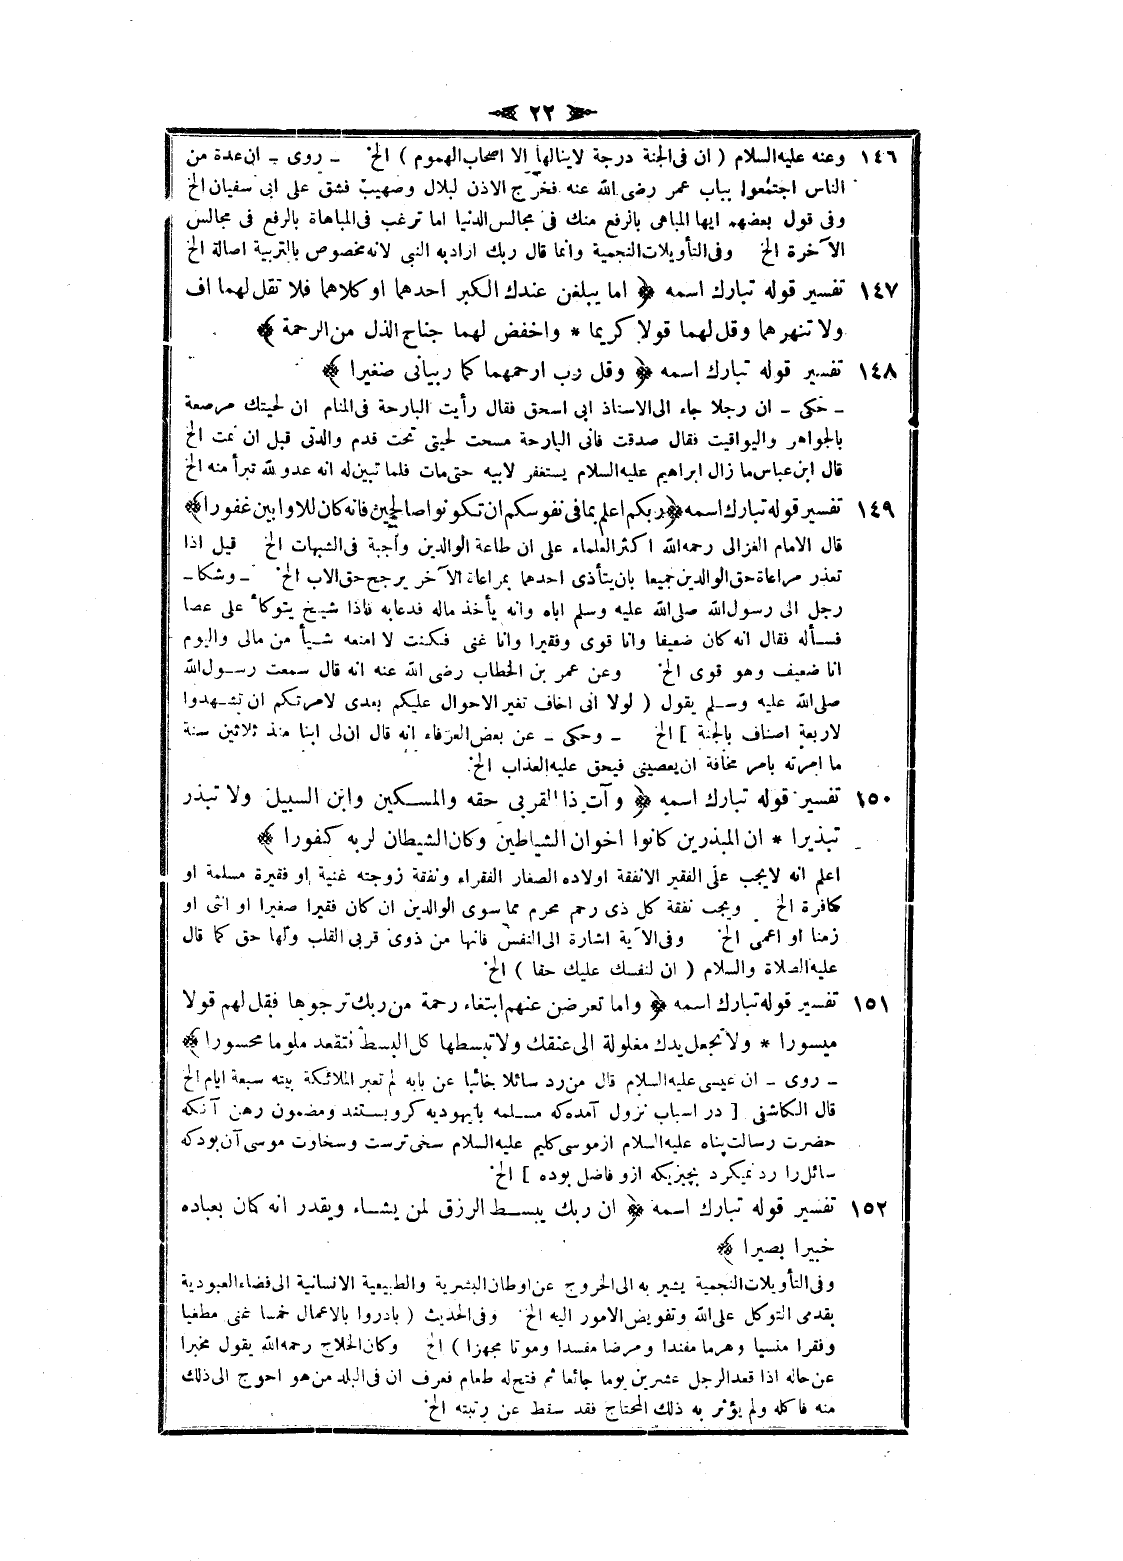 ٢٢
١٤٦ وعنه عليه السلام ( ان فى الجنة درجة لاينالها الا اصحاب الهموم ) الخ ـ روى ـ ان عدة من
الناس اجتمعوا بباب عمر رضى الله عنه فخرج الاذن لبلال وصهيب فشق على ابى سفيان الخ
وفى قول بعضهم ايها المباهى بالرفع منك فى مجالس الدنيا اما ترغب فى المباهاة بالرفع فى مجالس
الآخرة الخ وفى التأويلات النجمية وانما قال ربك اراد به النبى لانه مخصوص بالتربية اصالة الخ
١٤٧ تفسير قوله تبارك اسمه ﴿ اما يبلغن عندك الكبر احدهما او كلاهما فلا تقل لهما اف
ولا تنهرهما وقل لهما قولا كريما * واخفض لهما جناح الذل من الرحمة ﴾
١٤٨ تفسير قوله تبارك اسمه ﴿ وقل رب ارحمهما كما ربيانى صغيرا ﴾
ـ حكى ـ ان رجلا جاء الى الاستاذ ابى اسحق فقال رأيت البارحة فى المنام ان لحيتك مرصعة
بالجواهر واليواقيت فقال صدقت فانى البارحة مسحت لحيتى تحت قدم والدتى قبل ان نمت الخ
قال ابن عباس ما زال ابراهيم عليه السلام يستغفر لابيه حتى مات فلما تبين له انه عدو لله تبرأ منه الخ
١٤٩ تفسير قوله تبارك اسمه ﴿ ربكم اعلم بما فى نفوسكم ان تكونوا صالحين فانه كان للاوابين غفورا ﴾
قال الامام الغزالى رحمه الله اكثر العلماء على ان طاعة الوالدين واجبة فى الشبهات الخ قيل اذا
تعذر مراعاة حق الوالدين جميعا بان يتأذى احدهما بمراعاة الآخر يرجح حق الاب الخ ـ وشكا ـ
رجل الى رسول الله صلى الله عليه وسلم اباه وانه يأخذ ماله فدعا به فاذا شيخ يتوكأ على عصا
فسأله فقال انه كان ضعيفا وانا قوى وفقيرا وانا غنى فكنت لا امنعه شيأ من مالى واليوم
انا ضعيف وهو قوى الخ وعن عمر بن الخطاب رضى الله عنه انه قال سمعت رسول الله
صلى الله عليه وسلم يقول ( لولا انى اخاف تغير الاحوال عليكم بعدى لامرتكم ان تشهدوا
لاربعة اصناف بالجنة ] الخ ـ وحكى ـ عن بعض العرفاء انه قال ان لى ابنا منذ ثلاثين سنة
ما امرته بامر مخافة ان يعصينى فيحق عليه العذاب الخ
١٥٠ تفسير قوله تبارك اسمه ﴿ وآت ذا القربى حقه والمسكين وابن السبيل ولا تبذر
تبذيرا * ان المبذرين كانوا اخوان الشياطين وكان الشيطان لربه كفورا ﴾
اعلم انه لايجب على الفقير الانفقة اولاده الصغار الفقراء ونفقة زوجته غنية او فقيرة مسلمة او
كافرة الخ ويجب نفقة كل ذى رحم محرم مما سوى الوالدين ان كان فقيرا صغيرا او انثى او
زمنا او اعمى الخ وفى الآية اشارة الى النفس فانها من ذوى قربى القلب ولها حق كما قال
عليه الصلاة والسلام ( ان لنفسك عليك حقا ) الخ
١٥١ تفسير قوله تبارك اسمه ﴿ واما تعرضن عنهم ابتغاء رحمة من ربك ترجوها فقل لهم قولا
ميسورا * ولا تجعل يدك مغلولة الى عنقك ولا تبسطها كل البسط فتقعد ملوما محسورا ﴾
ـ روى ـ ان عيسى عليه السلام قال من رد سائلا خائبا عن بابه لم تعبر الملائكة بيته سبعة ايام الخ
قال الكاشفى [ در اسباب نزول آمده كه مسلمه بايهوديه كرو بستند ومضمون رهن آنكه
حضرت رسالت پناه عليه السلام از موسى كليم عليه السلام سخى ترست وسخاوت موسى آن بود كه
سائل را رد نميكرد بچيزيكه ازو فاضل بوده ] الخ
١٥٢ تفسير قوله تبارك اسمه ﴿ ان ربك يبسط الرزق لمن يشاء ويقدر انه كان بعباده
خبيرا بصيرا ﴾
وفى التأويلات النجمية يشير به الى الخروج عن اوطان البشرية والطبيعية الانسانية الى فضاء العبودية
بقدمى التوكل على الله وتفويض الامور اليه الخ وفى الحديث ( بادروا بالاعمال خمسا غنى مطغيا
وفقرا منسيا وهرما مفندا ومرضا مفسدا وموتا مجهزا ) الخ وكان الحلاج رحمه الله يقول مخبرا
عن حاله اذا قعد الرجل عشرين يوما جائعا ثم فتح له طعام فعرف ان فى البلد من هو احوج الى ذلك
منه فاكله ولم يؤثر به ذلك المحتاج فقد سقط عن رتبته الخ